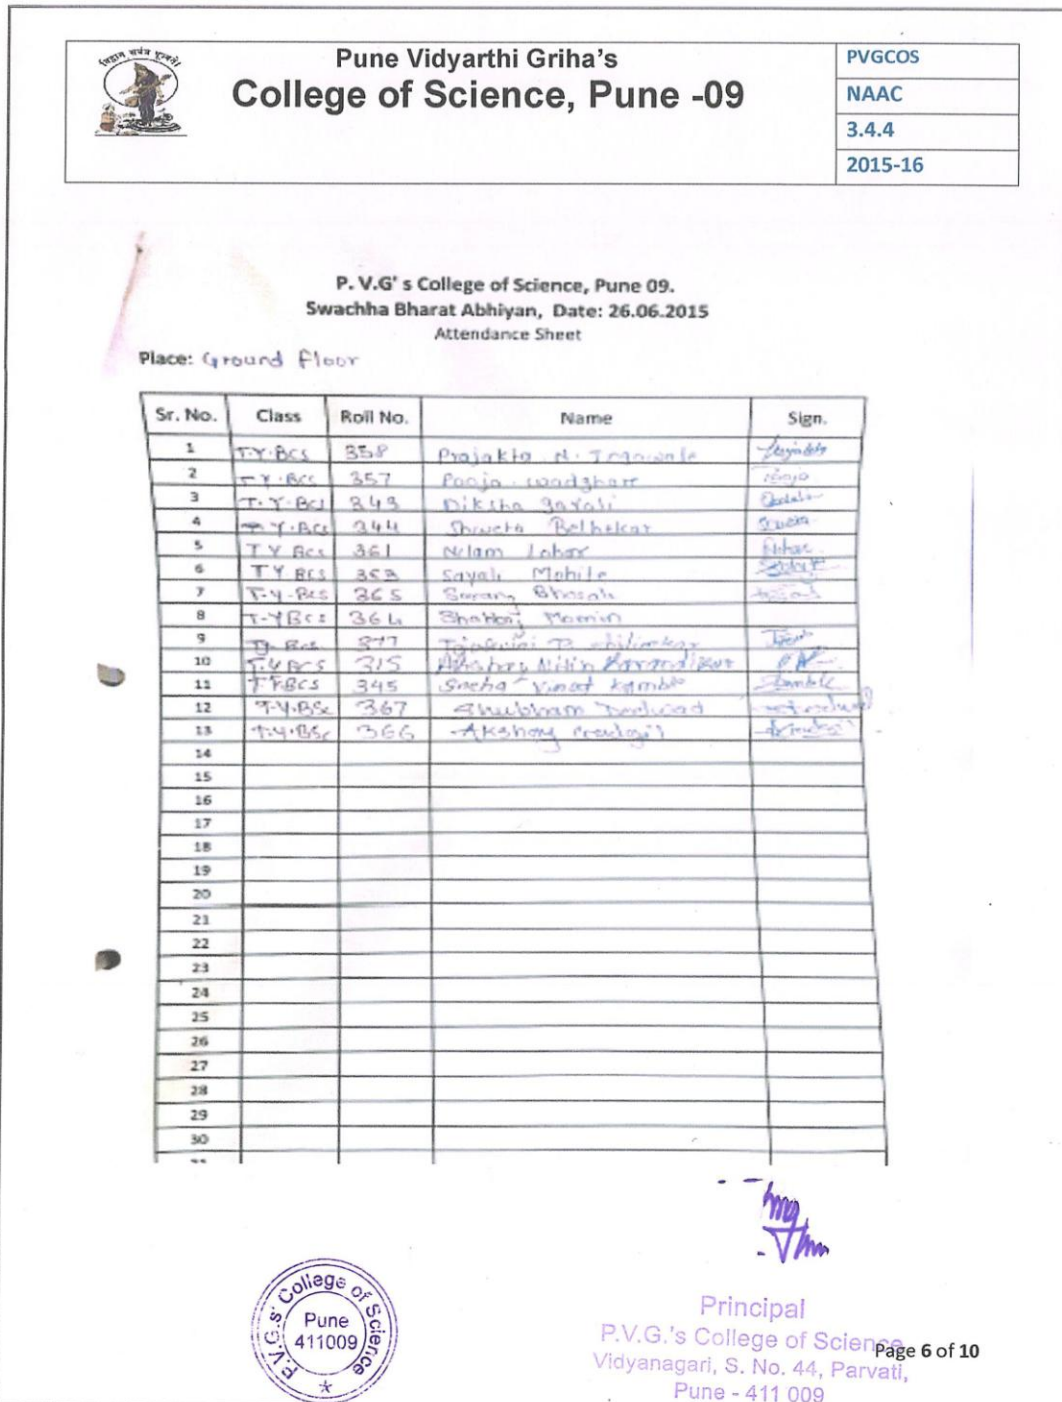 विद्वान सर्वत्र पूज्यते
Pune Vidyarthi Griha's
College of Science, Pune -09
PVGCOS
NAAC
3.4.4
2015-16
P. V.G' s College of Science, Pune 09.
Swachha Bharat Abhiyan, Date: 26.06.2015
Attendance Sheet
Place: Ground Floor
Sr. No. Class Roll No. Name Sign.
1 T.Y.BCS 358 Prajakta N.
2 T.Y.BCS 357 Pooja Pooja
3 T.Y.BCS 343 Diksha Gavali
4 T.Y.BCS 344 Shweta Belhekar Shweta
5 T Y BCS 361 Nilam Lohar
6 T Y.BCS 353 Sayali Mohile
7 T.Y.BCS 365 Sarang Bhosale
8 T.Y BCS 364 Momin
9 377
10 T.Y BCS 315 Akshay Nitin Karandikar
11 T.Y.BCS 345 Sneha Vinod Kamble Kamble
12 T.Y.BSc 367 Shubham
13 T.Y.BSc 366 Akshay
14
15
16
17
18
19
20
21
22
23
24
25
26
27
28
29
30
P.V.G.s' College of Science
Pune
411009
Principal
P.V.G.'s College of Science
Vidyanagari, S. No. 44, Parvati,
Pune - 411 009
Page 6 of 10